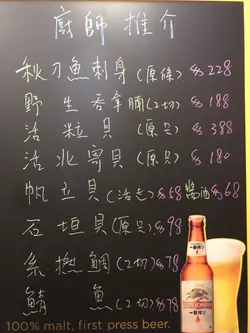 廚師推介
秋刀魚刺身(原條)$228
野生吞拿腩(2切)$188
活粒貝(原只)$388
活北寄貝(原只)$180
帆立貝(活走)$68醬油$68
石垣貝(原只)$98
糸撚鯛(2切)$78
鯖魚(2切)$78
一番搾り
KIRIN
100% malt, first press beer.